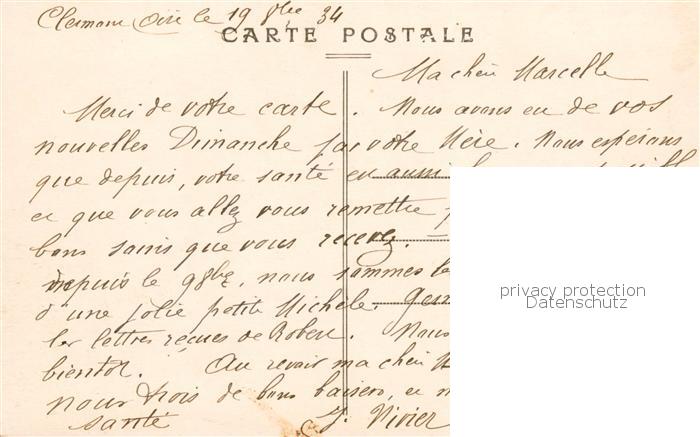 Clermont Oise le 19 8bre 34
CARTE POSTALE
Ma chère Marcelle
Merci de votre carte. Nous avons eu de vos
nouvelles Dimanche par votre Mère. Nous espérons
que depuis, votre santé est aussi
et que vous allez vous remettre
bons soins que vous recevez.
depuis le 9 8bre, nous sommes les
d'une jolie petite Michèle.
les lettres reçues de Robert. Nous
bientôt. Au revoir ma chère
nous trois de bons baisers, et
santé J. Vivier
privacy protection
Datenschutz